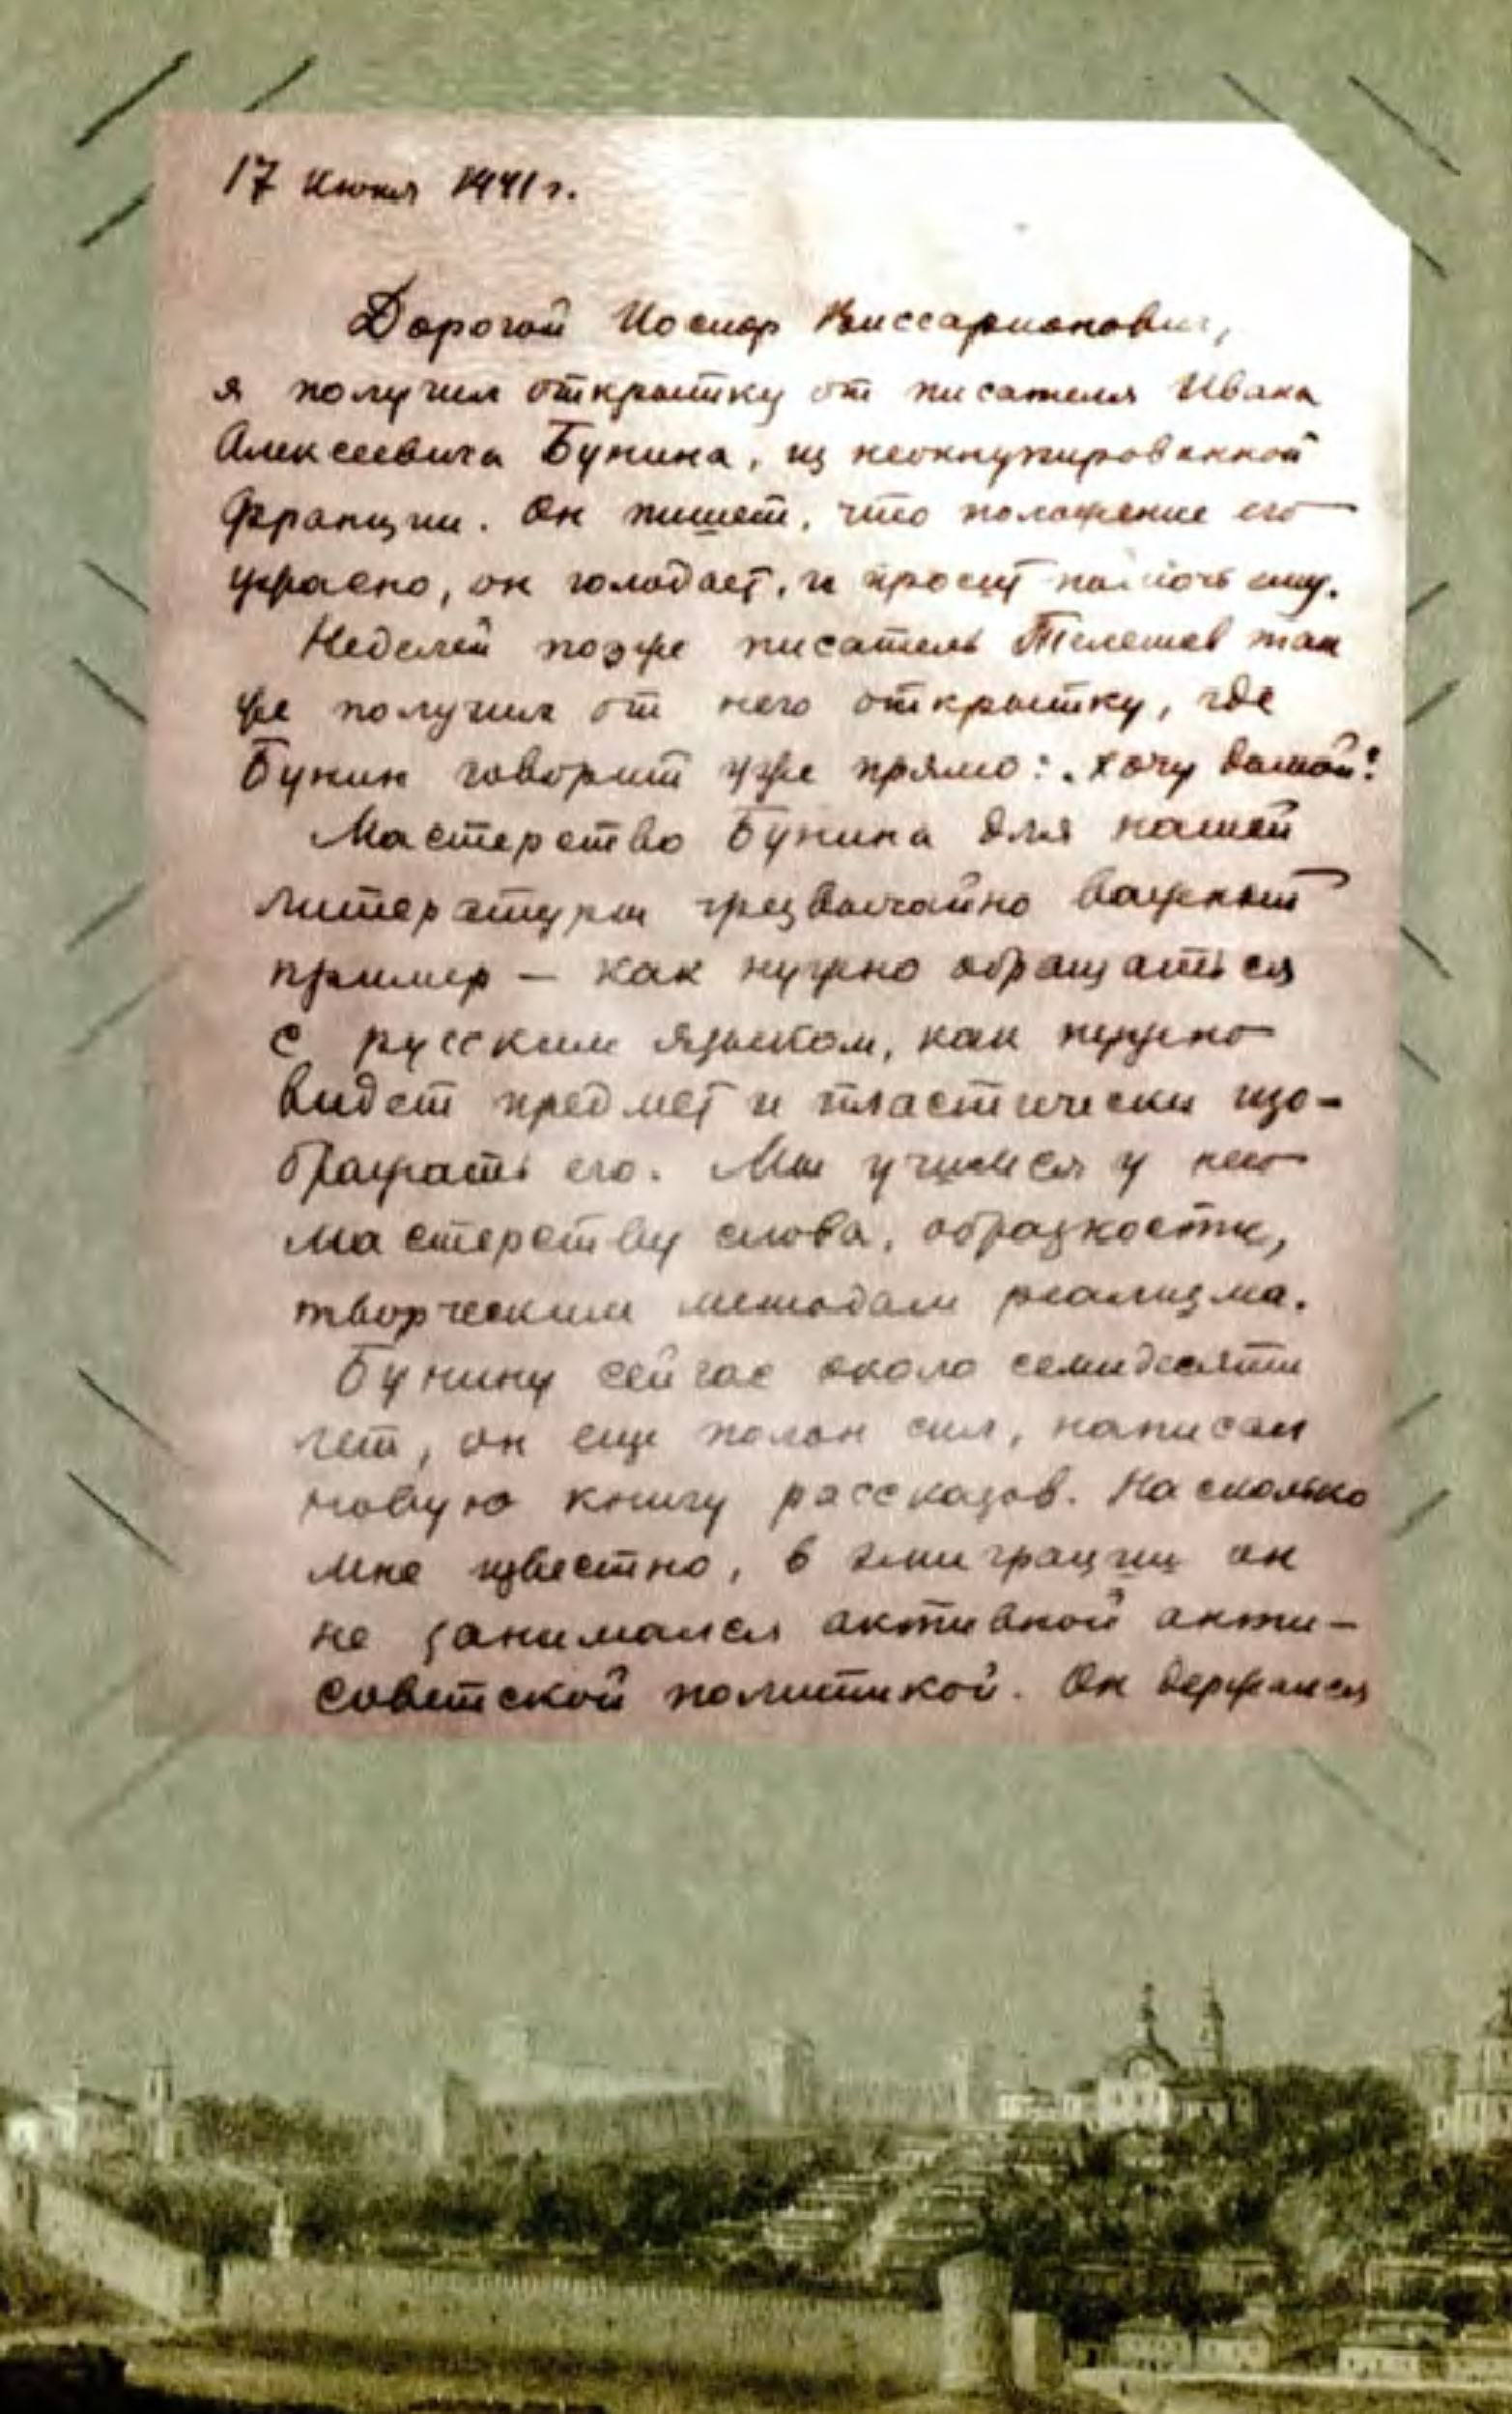 17 Июня 1941 г.
Дорогой Иосиф Виссарионович,
я получил открытку от писателя Ивана
Алексеевича Бунина, из неоккупированной
Франции. Он пишет, что положение его
ужасно, он голодает, и просит помочь ему.
Неделей позже писатель Телешев так
же получил от него открытку, где
Бунин говорит уже прямо: „Хочу домой“!
Мастерство Бунина для нашей
литературы чрезвычайно важный
пример — как нужно обращаться
с русским языком, как нужно
видеть предмет и пластически изо-
бражать его. Мы учимся у него
мастерству слова, образности,
творческим методам реализма.
Бунину сейчас около семидесяти
лет, он еще полон сил, написал
новую книгу рассказов. Насколько
мне известно, в эмиграции он
не занимался активной анти-
советской политикой. Он держался